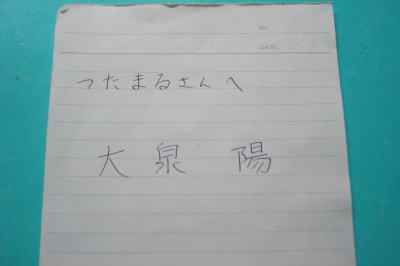 No.
DATE
つたまるさんへ
大泉 陽